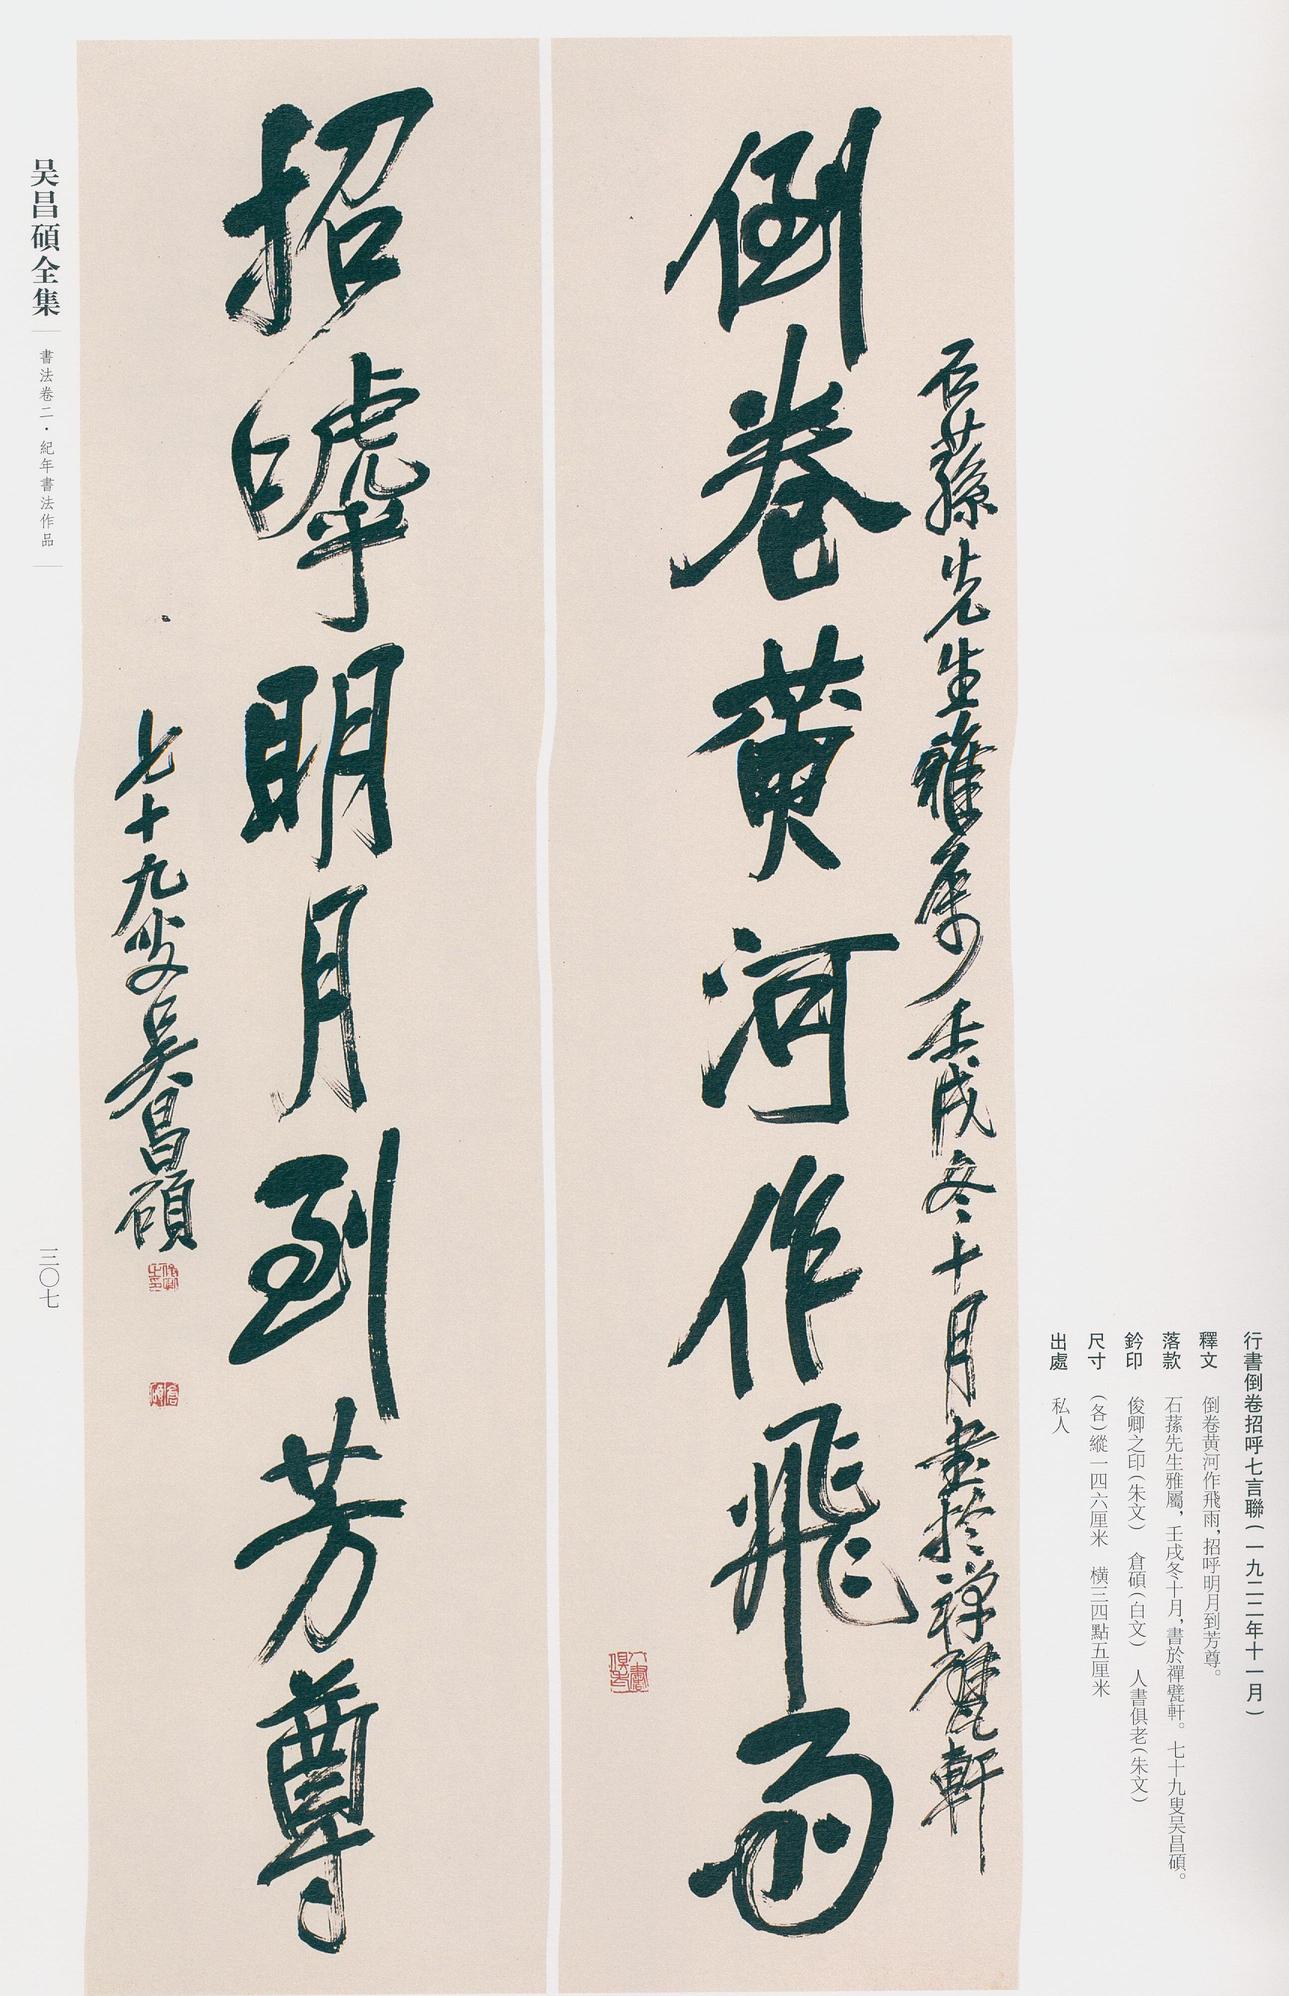 行書倒卷招呼七言聯(一九二二年十一月)
釋文 倒卷黄河作飛雨,招呼明月到芳尊。
落款 石蓀先生雅屬,壬戌冬十月,書於禪甓軒。七十九叟吴昌碩。
鈐印 俊卿之印(朱文) 倉碩(白文) 人書俱老(朱文)
尺寸 (各)縱一四六厘米 横三四點五厘米
出處 私人
石蓀先生雅屬壬戌冬十月書於禪甓軒
倒卷黄河作飛雨
人書俱老
招嘑明月到芳尊
七十九叟吴昌碩
俊卿之印
倉碩
吴昌碩全集
書法卷二·紀年書法作品
三〇七